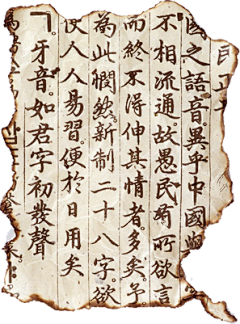 民正
國之語音。異乎中國
不相流通。故愚民有所欲言
而終不得伸其情者多矣。予
為此憫然。新制二十八字。欲
使人人易習。便於日用矣
ㄱ。牙音。如君字初發聲